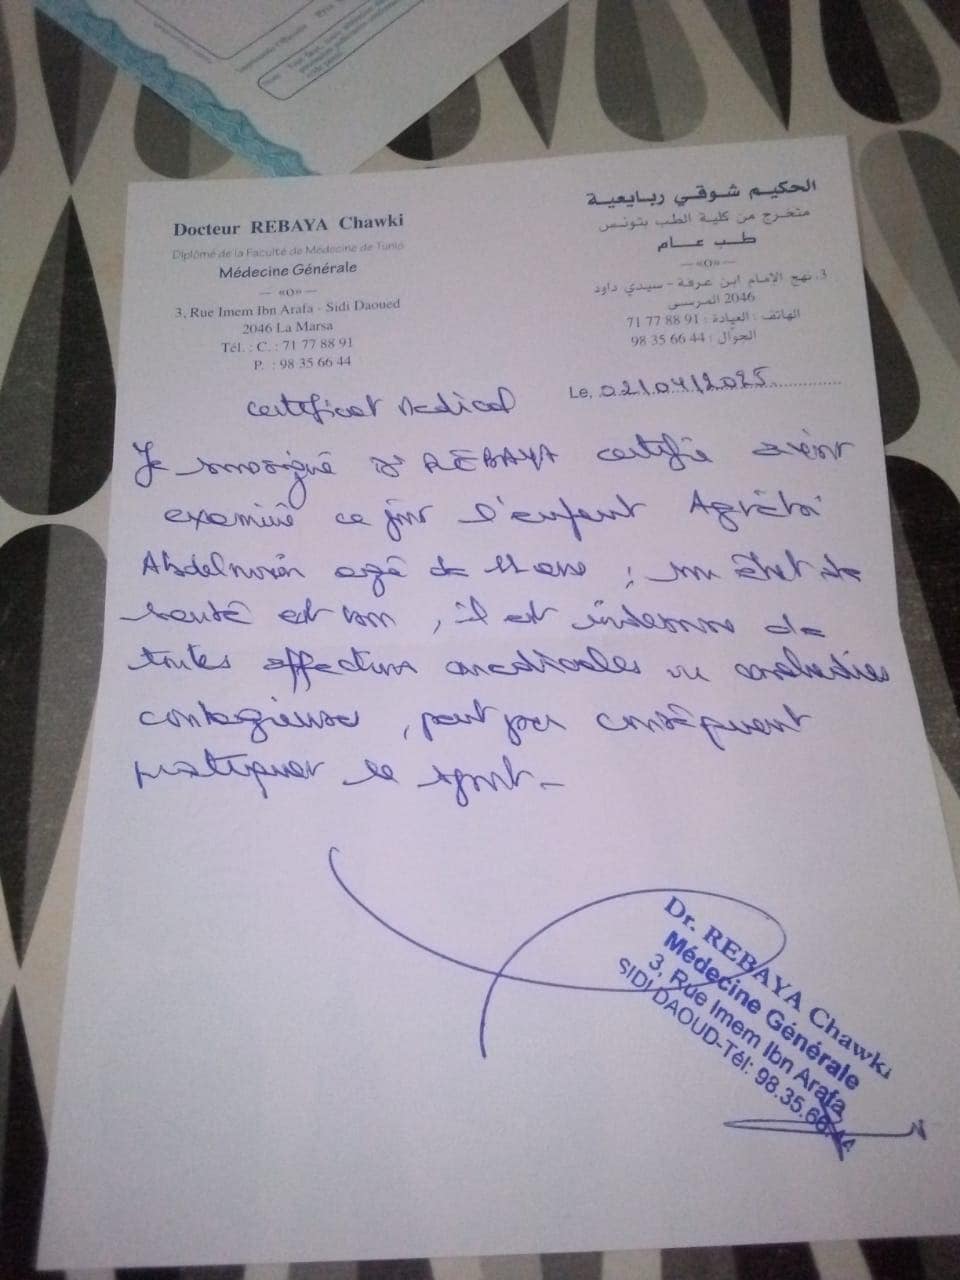 Docteur REBAYA Chawki
Diplômé de la Faculté de Médecine de Tunis
Médecine Générale
— «O» —
3, Rue Imem Ibn Arafa - Sidi Daoued
2046 La Marsa
Tél. : C. : 71 77 88 91
P. : 98 35 66 44
الحكيم شوقي ربايعية
متخرج من كلية الطب بتونس
طب عام
— «O» —
3، نهج الامام ابن عرفة - سيدي داود
2046 المرسى
الهاتف : العيادة : 91 88 77 71
الجوّال : 44 66 35 98
Le, 02/04/2025
Certificat Medical
Je soussigné Dr REBAYA certifie avoir
examiné ce jour l'enfant Agrebi
Abdelmoïn agé de 11 ans ; son état de
santé est bon, il est indemne de
toutes affections medicales ou maladies
contagieuses, peut par conséquent
pratiquer le sport.
Dr. REBAYA Chawki
Médecine Générale
3, Rue Imem Ibn Arafa
SIDI DAOUD-Tél: 98.35.66.44